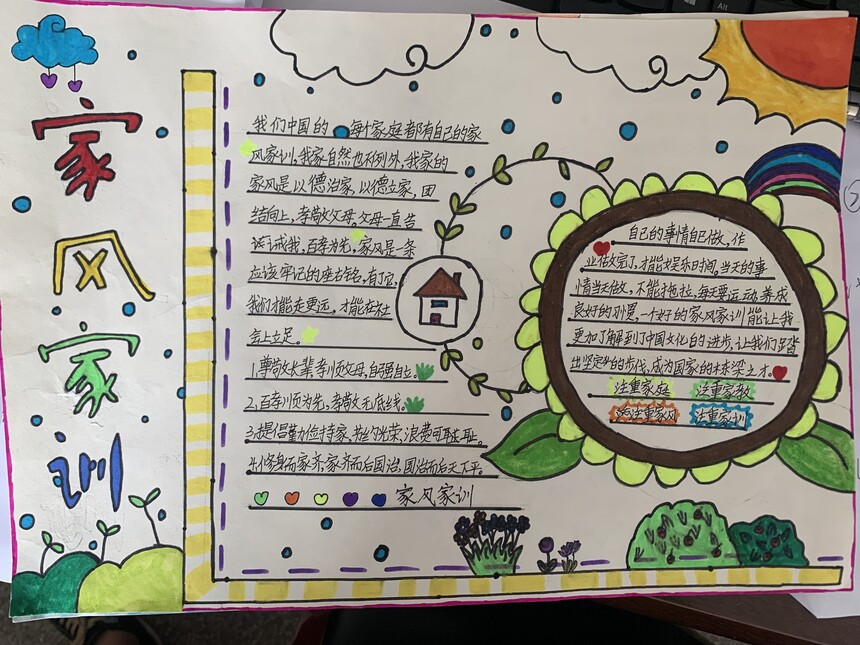 家风家训
我们中国的每个家庭都有自己的家
风家训,我家自然也不例外,我家的
家风是以德治家,以德立家,团
结向上,孝敬父母,父母一直告
诫我,百孝为先,家风是一条
应该牢记的座右铭,有了它,
我们才能走更远,才能在社
会上立足。
1.尊敬长辈,孝顺父母,自强自立。
2.百孝顺为先,孝敬无底线。
3.提倡勤俭持家,节约光荣,浪费可耻。
4.修身而家齐,家齐而后国治,国治而后天下平。
家风家训
自己的事情自己做,作
业做完了,才能娱乐时间,当天的事
情当天做,不能拖拉,每天要运动,养成
良好的习惯,一个好的家风家训能让我
更加了解到了中国文化的进步,让我们踏
出坚定的步伐,成为国家的栋梁之才。
注重家庭 注重家教
注重家风 注重家训
Alt